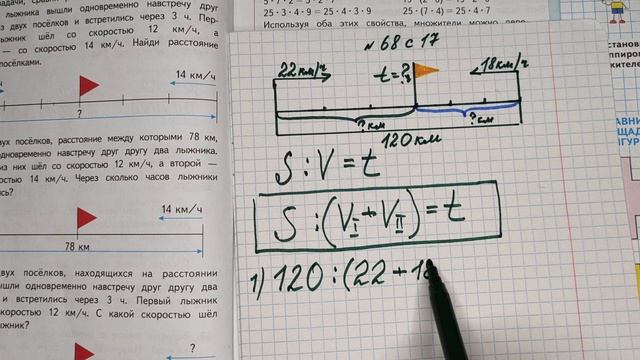 задачи, сравни
лыжника вышли одновременно навстречу друг
из двух посёлков и встретились через 3 ч. Пер-
лыжник шёл со скоростью 12 км/ч, а
— со скоростью 14 км/ч. Найди расстояние
посёлками.
14 км/ч
?
двух посёлков, расстояние между которыми 78 км,
одновременно навстречу друг другу два лыжника.
из них шёл со скоростью 12 км/ч, а второй —
скоростью 14 км/ч. Через сколько часов лыжники
14 км/ч
78 км
двух посёлков, находящихся на расстоянии
вышли одновременно навстречу друг другу два
и встретились через 3 ч. Первый лыжник
скоростью 12 км/ч. С какой скоростью шёл
лыжник?
?
25 · 3 · 4 · 9 = 25 · 4 · 3 · 9
25 · (7 · 4) = 25 · 4 · 7
Используя оба этих свойства, множители можно
№ 68 с 17
22 км/ч
t = ?
18 км/ч
? км
? км
120 км
S : V = t
S : (V I + V II) = t
1) 120 : (22 + 18